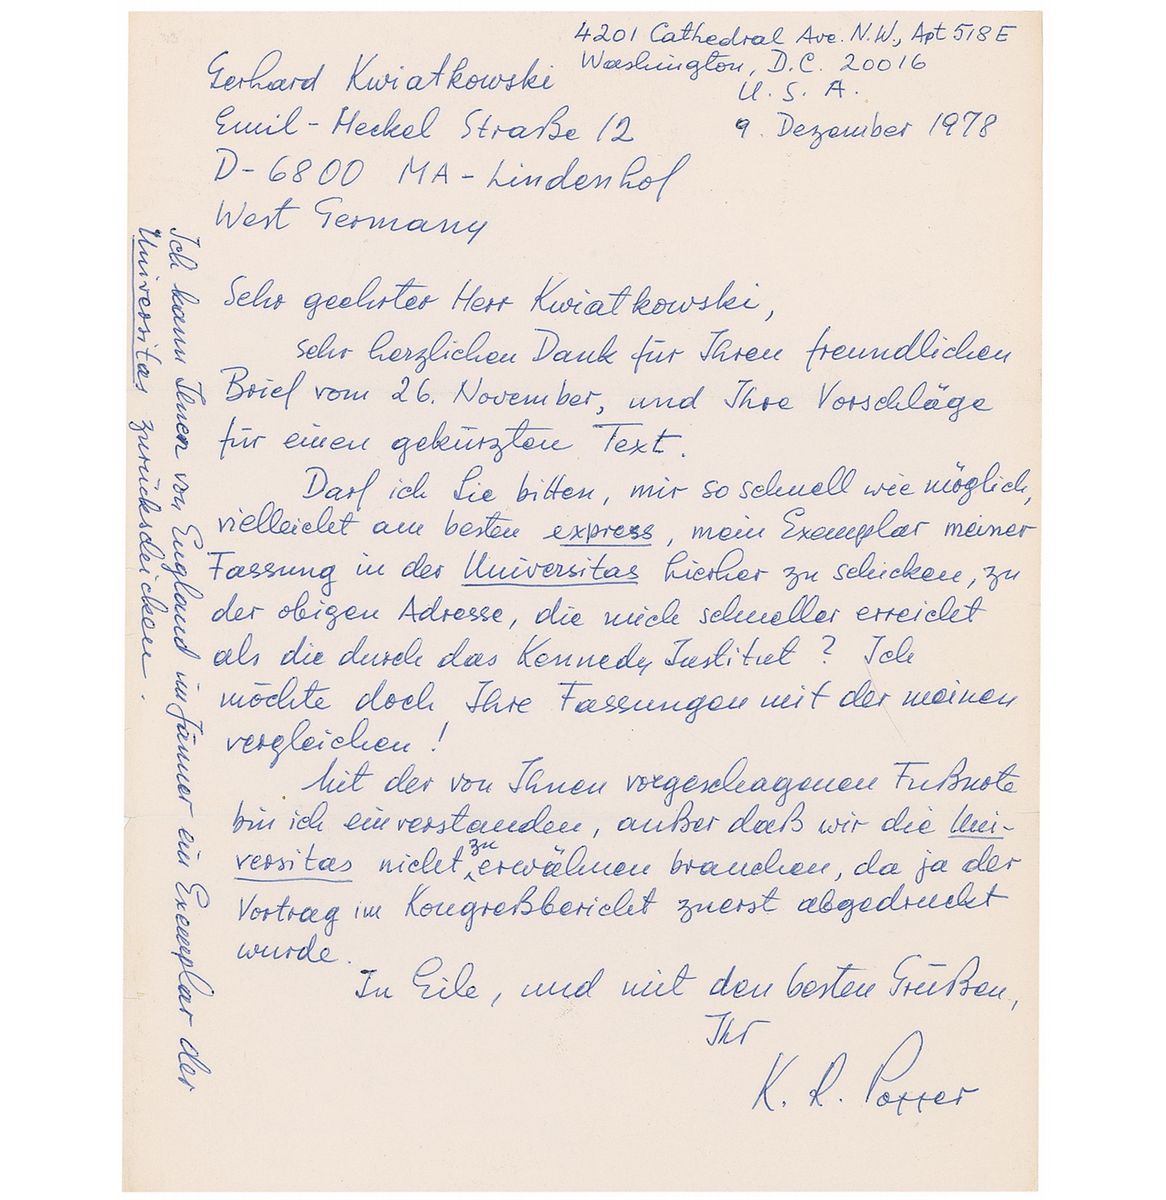 4201 Cathedral Ave. N.W., Apt 518E
Washington, D.C. 20016
U. S. A.
9. Dezember 1978
Gerhard Kwiatkowski
Emil-Heckel Straße 12
D-6800 MA-Lindenhof
West Germany
Sehr geehrter Herr Kwiatkowski,
sehr herzlichen Dank für Ihren freundlichen
Brief vom 26. November, und Ihre Vorschläge
für einen gekürzten Text.
Darf ich Sie bitten, mir so schnell wie möglich,
vielleicht am besten express, mein Exemplar meiner
Fassung in der Universitas hierher zu schicken, zu
der obigen Adresse, die mich schneller erreicht
als die durch das Kennedy Institut? Ich
möchte doch Ihre Fassungen mit der meinen
vergleichen!
Mit der von Ihnen vorgeschlagenen Fußnote
bin ich einverstanden, außer daß wir die Uni-
versitas nicht zu erwähnen brauchen, da ja der
Vortrag im Kongreßbericht zuerst abgedruckt
wurde.
In Eile, und mit den besten Grüßen,
Ihr
K. R. Popper
Ich kann Ihnen von England im Jänner ein Exemplar der
Universitas zurückschicken.